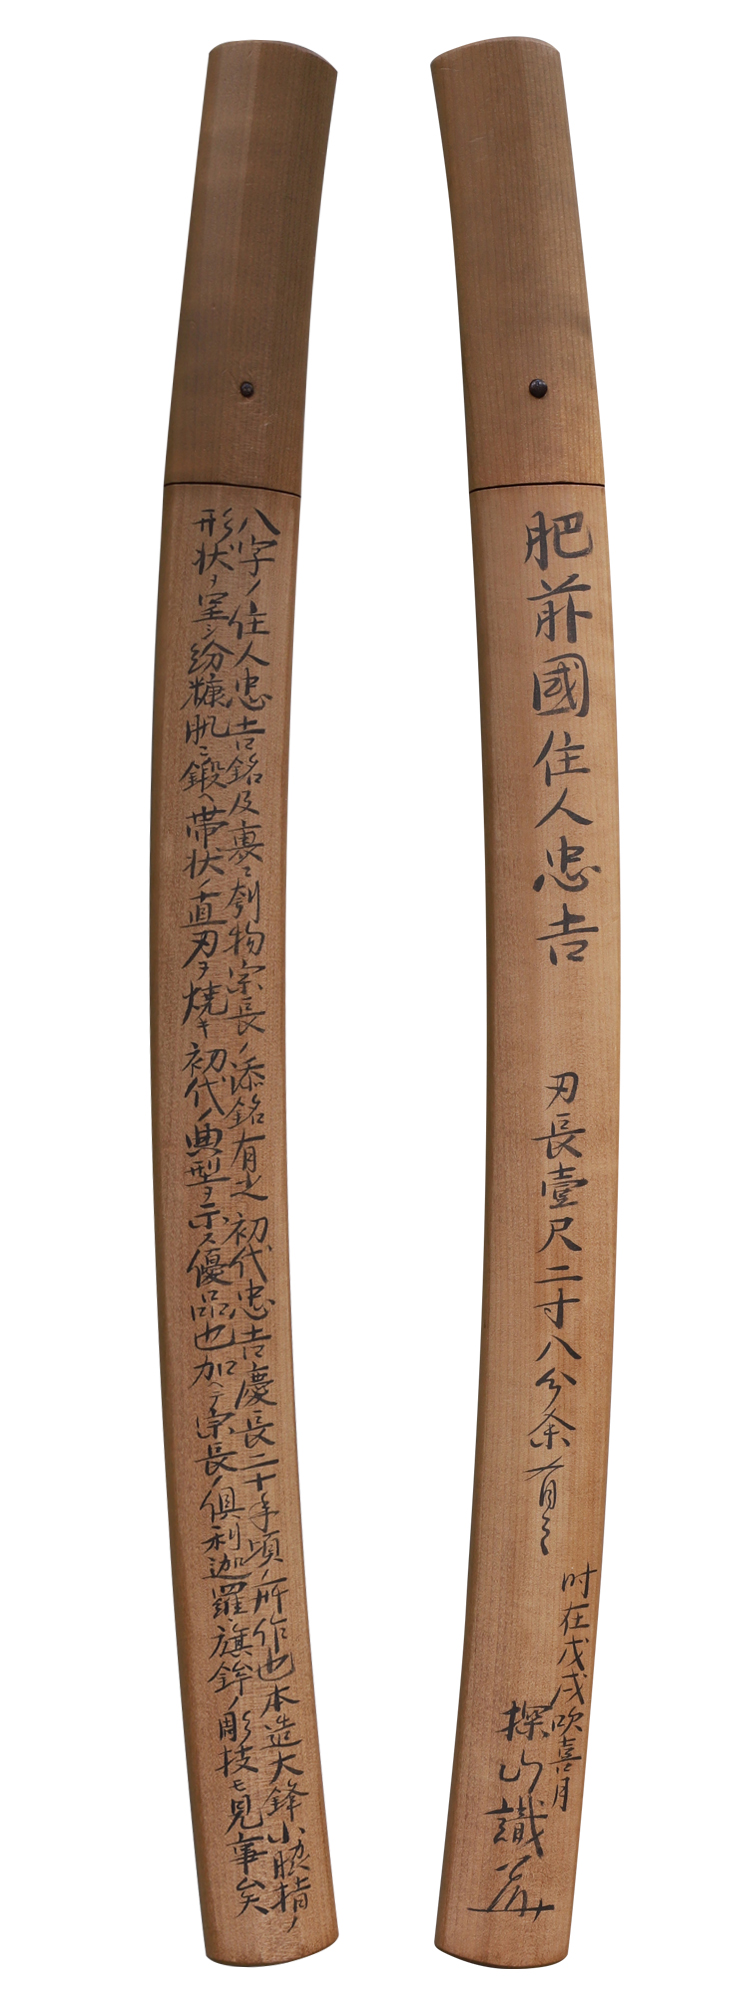 肥前國住人忠吉
刃長壹尺二寸八分余有之
时在戊戌吹喜月
探山識
八字ノ住人忠吉銘及裏ニ刳物宗長ノ添銘有之初代忠吉慶長二十年頃ノ所作也本造大鋒小脇指ノ
形状ヲ呈シ糠肌ニ鍛ヘ帯状ノ直刃ヲ焼キ初代ノ典型ヲ示ス優品也加ヘテ宗長ノ倶利迦羅旗鉾ノ彫技モ見事矣